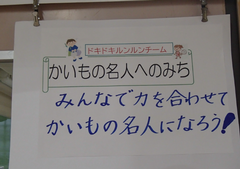 ドキドキルンルンチーム
かいもの名人へのみち
みんなで力を合わせて
かいもの名人になろう!